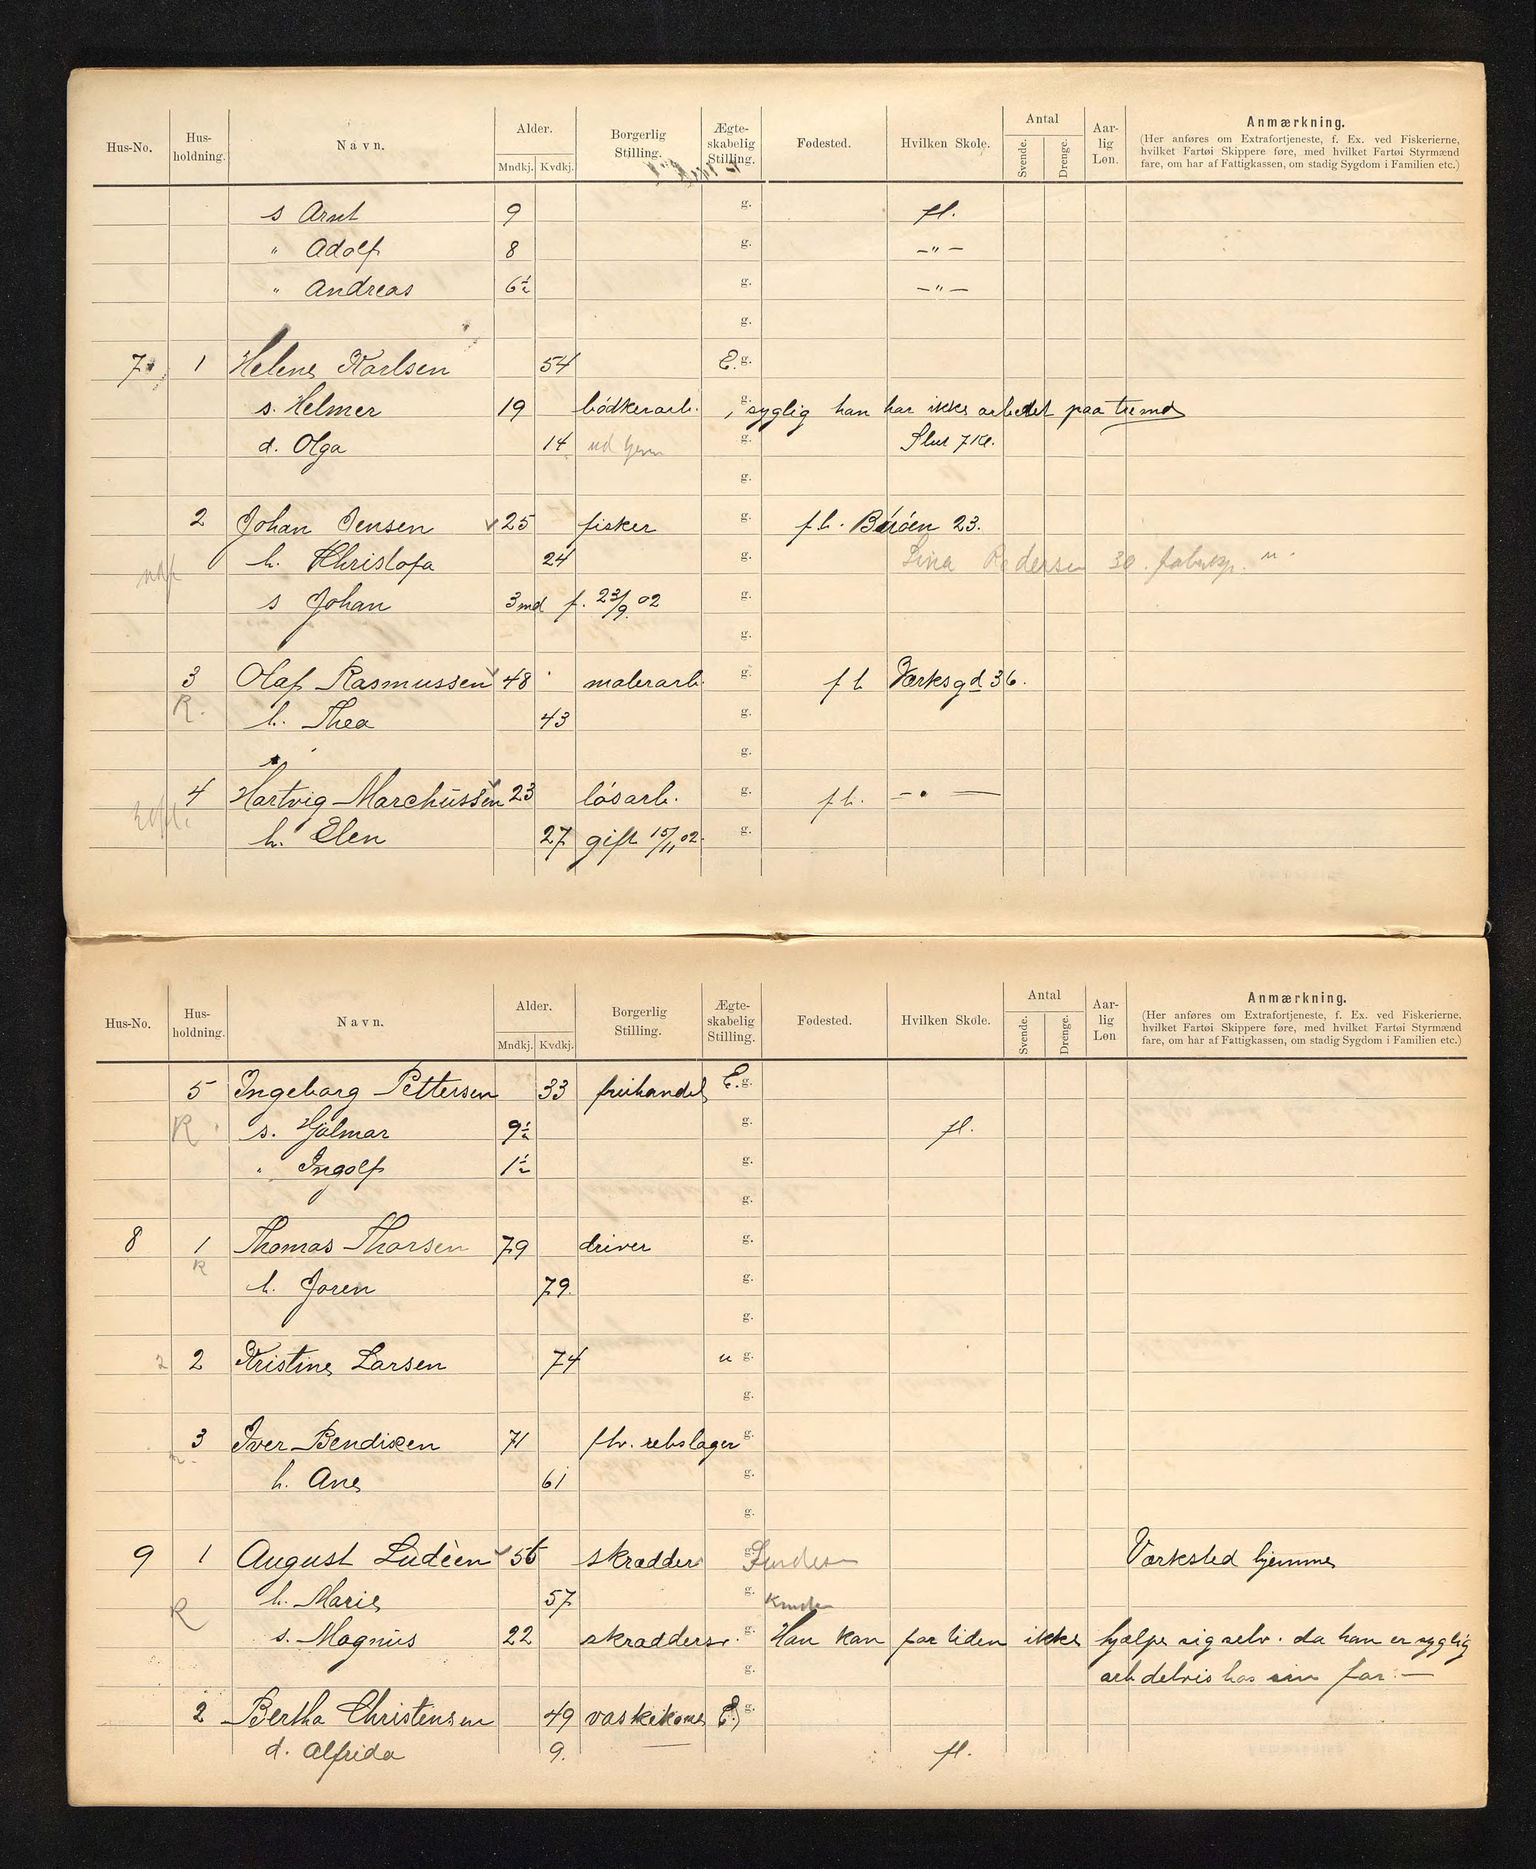 Hus-No. Hus-holdning. Navn. Alder. Mndkj. Kvdkj. Borgerlig Stilling. Ægte-skabelig Stilling. Fødested. Hvilken Skole. Antal Svende. Drenge. Aar-lig Løn. Anmærkning.
(Her anføres om Extrafortjeneste, f. Ex. ved Fiskerierne,
hvilket Fartøi Skippere føre, med hvilket Fartøi Styrmænd
fare, om har af Fattigkassen, om stadig Sygdom i Familien etc.)
s Arnt 9 g. fl.
" Adolf 8 g. —"—
" Andreas 6½ g. —"—
g.
7 1 Helene Karlsen 54 E. g.
s. Helmer 19 bödkerarb. g. , syglig han har ikke arbeidet paa tre md
d. Olga 14 g. 7 kl.
g.
2 Johan Jensen 25 fisker g. f.h. Böröen 23.
h. Khristofa 24 g. Lina Pedersen 30. fabr u.
s Johan 3 md f. 23/9. 02 g.
g.
3 Olaf Rasmussen 48 malerarb. g. f h Værksgd 36.
R. h. Thea 43 g.
g.
4 Hartvig Marchussen 23 lösarb. g. f.h. —"—
h. Elen 27 gift 15/11 02. g.
Hus-No. Hus-holdning. Navn. Alder. Mndkj. Kvdkj. Borgerlig Stilling. Ægte-skabelig Stilling. Fødested. Hvilken Skole. Antal Svende. Drenge. Aar-lig Løn Anmærkning.
(Her anføres om Extrafortjeneste, f. Ex. ved Fiskerierne,
hvilket Fartøi Skippere føre, med hvilket Fartøi Styrmænd
fare, om har af Fattigkassen, om stadig Sygdom i Familien etc.)
5 Ingeborg Pettersen 33 friihandel E. g.
R s. Hjalmar 9½ g. fl.
" Ingolf 1½ g.
g.
8 1 Thomas Thorsen 79 driver g.
R h. Joren 79. g.
g.
2 Kristine Larsen 74 u g.
g.
3 Iver Bendixen 71 fhv. rebslager g.
h. Ane 61 g.
g.
9 1 August Ludèen 56 skrædder g. Værksted hjemme
R h. Marie 57 g.
s. Magnus 22 skrædders. g. Han kan for tiden ikke hjælpe sig selv. da han er syglig
g. arb delvis hos sin far. —
2 Bertha Christensen 49 vaskekone E. g.
d. Alfrida 9. fl.